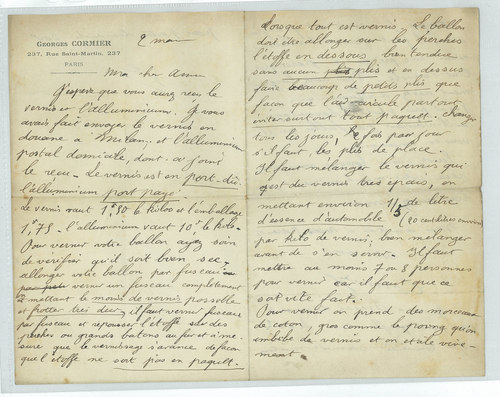 GEORGES CORMIER
237, Rue Saint-Martin, 237
PARIS
2 mai
Mon cher
J'espère que vous aurez reçu le
vernis et l'alluminium. Je vous
avais fait envoyer le vernis en
douane a Milan, et l'alluminium
postal domicile, dont ci joint
le reçu. Le vernis est en port-dû
l'alluminium port payé.
Le vernis vaut 1f,50 le kilo et l'emballage
1f,75. l'alluminium vaut 10f le kilo.
Pour vernir votre ballon ayez soin
de vérifier qu'il sort bien sec,
allonger votre ballon par fuseau
vernir un fuseau complètement
en mettant le moins de vernis possible
et frotter très dur, il faut vernir fuseau
par fuseau et repousser l'étoffe sur des
perches ou grands batons au fur et a me-
sure que le vernissage s'avance de façon
que l'étoffe ne soit pas en paquet.
Lorsque tout est vernis. Le ballon
doit être allonger sur les perches
l'étoffe en dessous bien tendue
sans aucun plis et en dessus
faire beaucoup de petits plis que
façon que l'air circule partout
éviter surtout tout paquet. Changer
tous les jours, fois par jour
s'il faut, les plis de place.
Il faut mélanger le vernis qui
est du vernis très épais, en
mettant environ 1/5 de litre
d'essence d'automobile (20 centilitres environ
par kilo de vernis, bien mélanger
avant de s'en servir. Il faut
mettre au moins 7 ou 8 personnes
pour vernir car il faut que ce
soit vite fait.
Pour vernir on prend des morceaux
de coton, gros comme le poing qu'on
imbibe de vernis et on étale vive-
ment